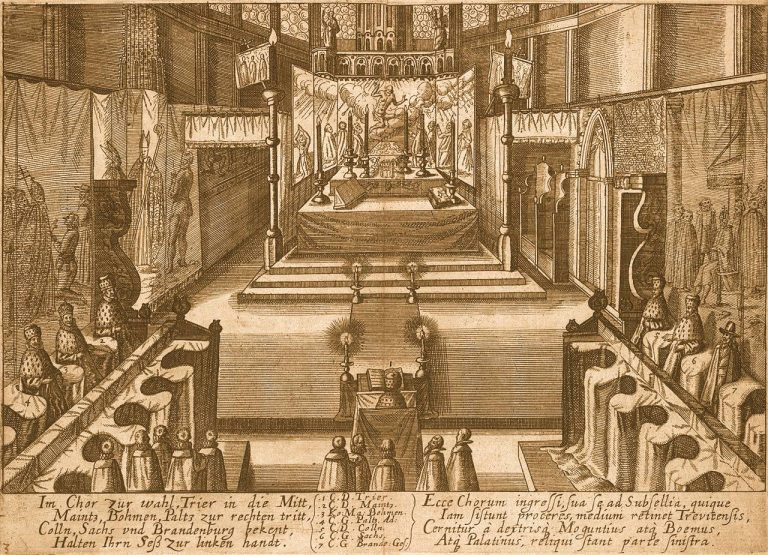 Im Chor zur wahl, Trier in die Mitt,
Maintz, Böhmen, Paltz zur rechten tritt,
Colln, Sachs vnd Brandenburg bekent,
Halten Ihrn Seß zur lincken handt.
1 C. D. Trier.
2 C. D. Maintz.
3 K. M. Bohmen.
4 C. G. Paltz.
5 C. D. Colln.
6 C. G. Sachs.
7 C. G. Brande. Ges.
Ecce Chorum ingressi, sua se ad Subsellia, quique
Iam sistunt proceres, medium retinet Trevirensis,
Cernitur á dextris Moguntius atq₃ Boemus,
Atq₃ Palatinus, reliqui stant parte sinistra.